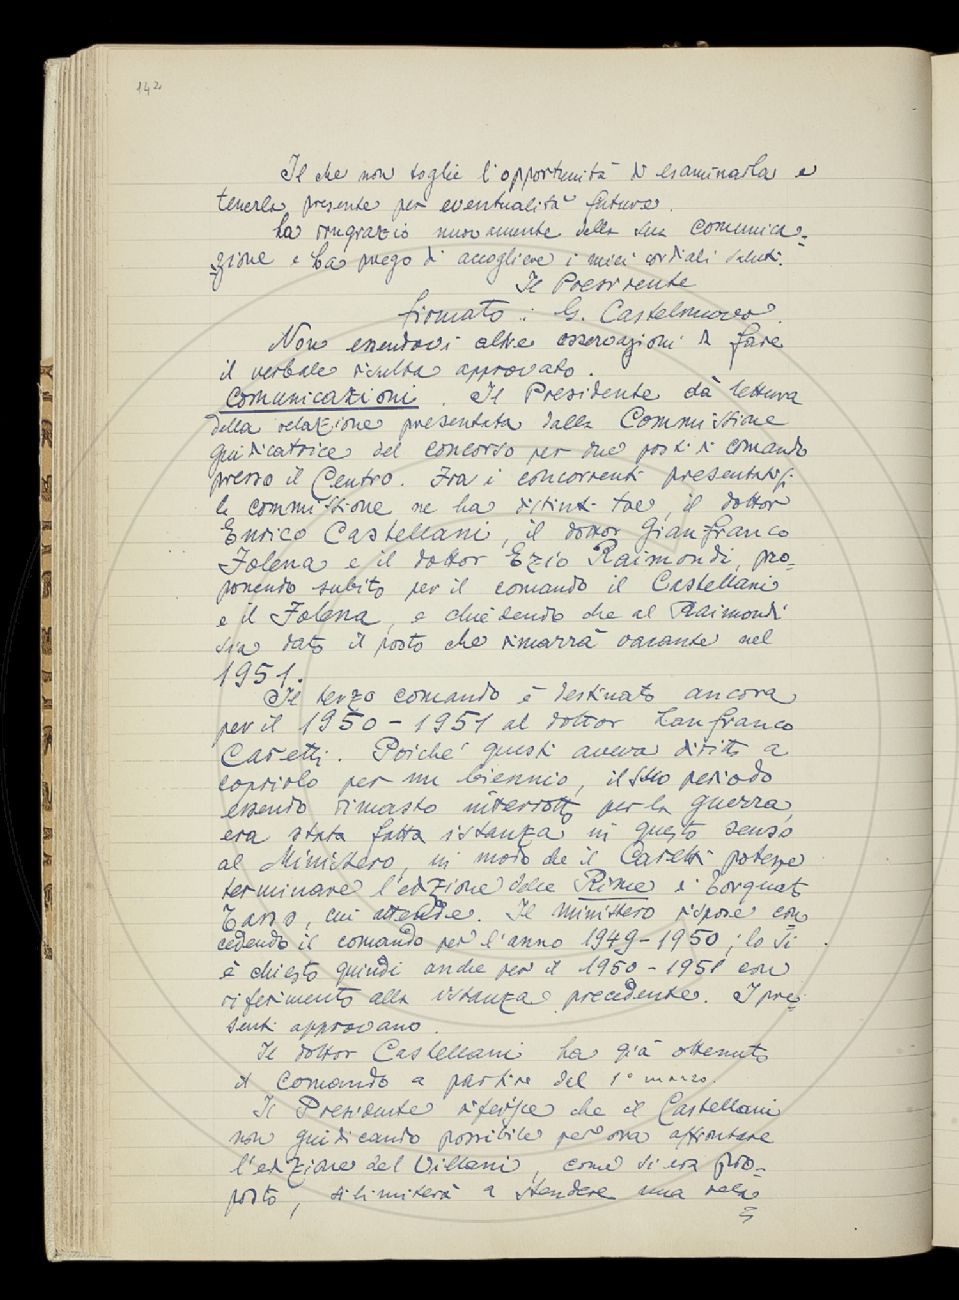 142
Il che non toglie l'opportunità di esaminarla e
tenerla presente per eventualità future.
La ringrazio nuovamente della sua comunica=
=zione e La prego di accogliere i miei cordiali saluti.
Il Presidente
firmato: G. Castelnuovo.
Non essendovi altre osservazioni da fare
il verbale risulta approvato.
Comunicazioni. Il Presidente dà lettura
della relazione presentata dalla Commissione
giudicatrice del concorso per due posti di comando
presso il Centro. Fra i concorrenti presentatisi
la commissione ne ha distinti tre, il dottor
Enrico Castellani, il dottor Gianfranco
Folena e il dottor Ezio Raimondi, pro=
ponendo subito per il comando il Castellani
e il Folena, e chiedendo che al Raimondi
sia dato il posto che rimarrà vacante nel
1951.
Il terzo comando è destinato ancora
per il 1950-1951 al dottor Lanfranco
Caretti. Poiché questi aveva diritto a
coprirlo per un biennio, il suo periodo
essendo rimasto interrotto per la guerra,
era stata fatta istanza in questo senso
al Ministero, in modo che il Caretti potesse
terminare l'edizione delle Rime di Torquato
Tasso, cui attende. Il Ministero rispose con
cedendo il comando per l'anno 1949-1950; lo si
è chiesto quindi anche per il 1950-1951 con
riferimento alla istanza precedente. I pre=
senti approvano.
Il dottor Castellani ha già ottenuto
il comando a partire dal 1° marzo.
Il Presidente riferisce che il Castellani
non giudicando possibile per ora affrontare
l'edizione del Villani, come si era pro=
posto, si limiterà a stendere una rela=
=